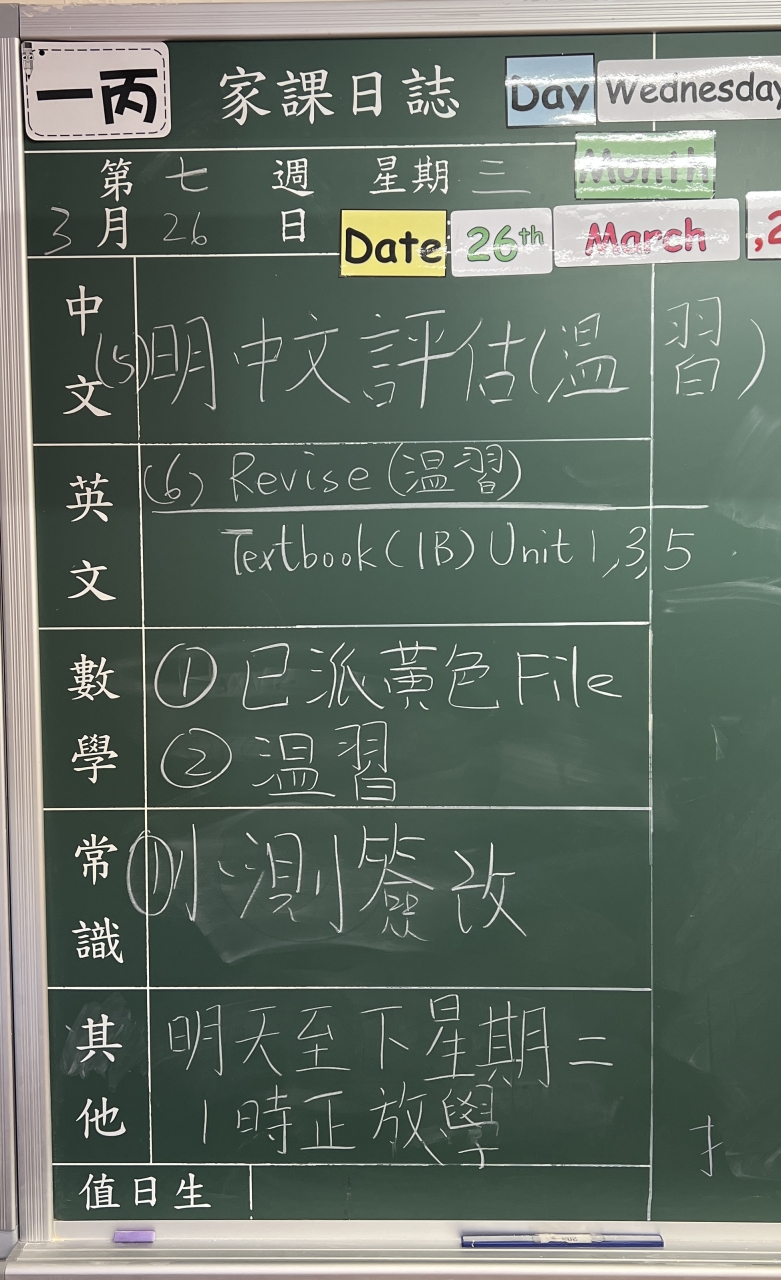 一丙 家課日誌 Day Wednesday
第七週 星期三 Month
3月26日 Date 26th March ,2
中文 (5)明中文評估(温習)
英文 (6) Revise (温習)
Textbook (1B) Unit 1,3,5
數學 ① 已派黃色File
② 温習
常識 ①小測簽改
其他 明天至下星期二
1時正放學
值日生